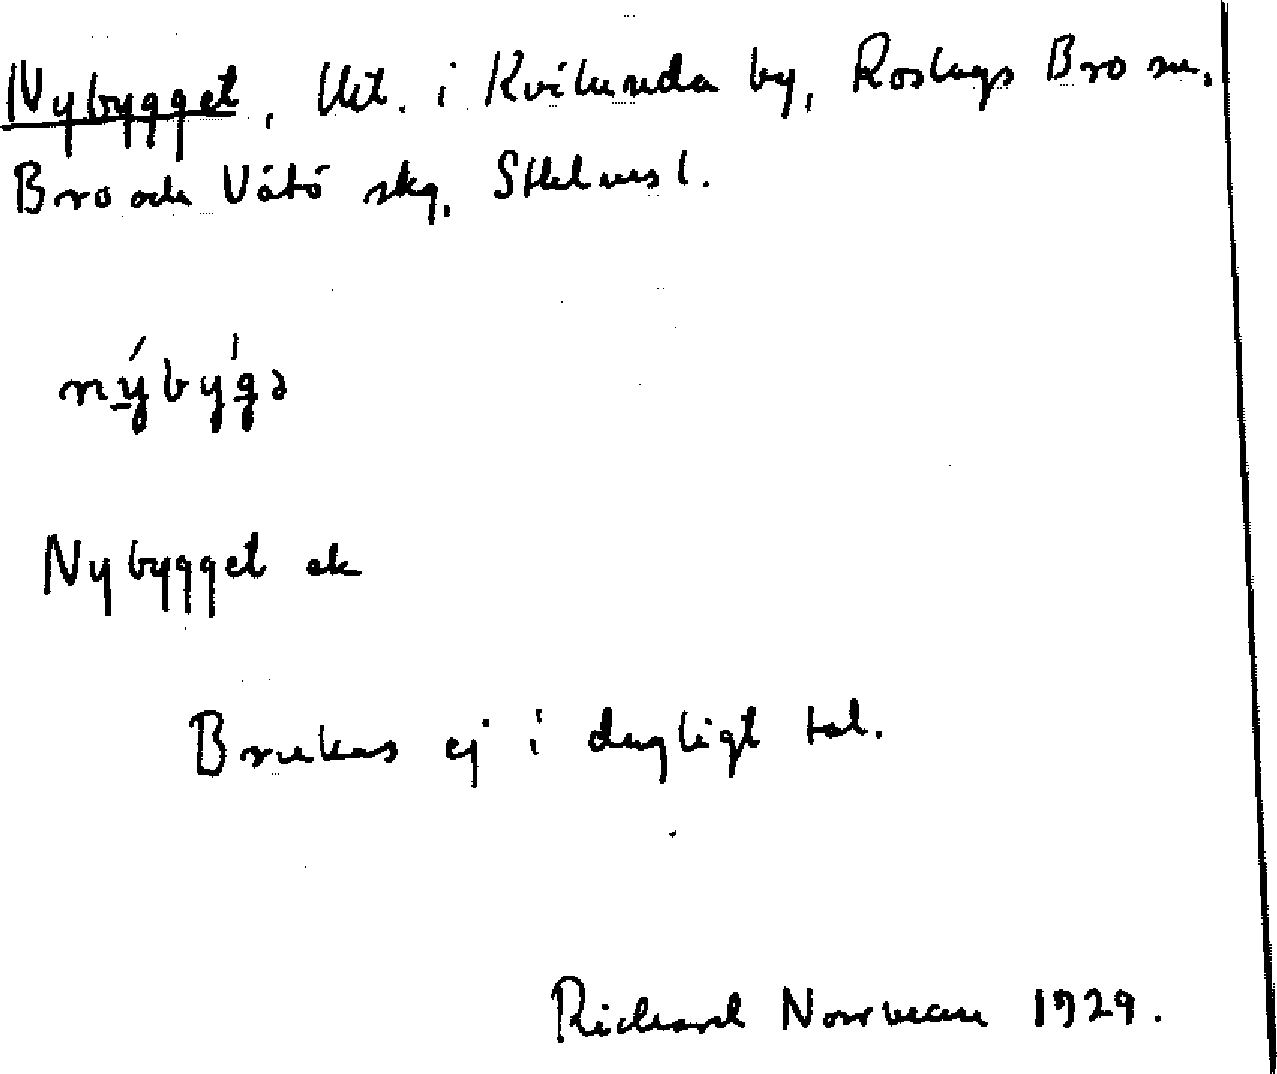 Nybygget, Utt. i Kvikunda by, Roslags Bro sn,
Bro och Vätö skg, Sthlms l.
nýbýgə
Nybygget ek
Brukas ej i dagligt tal.
Richard Norrman 1929.